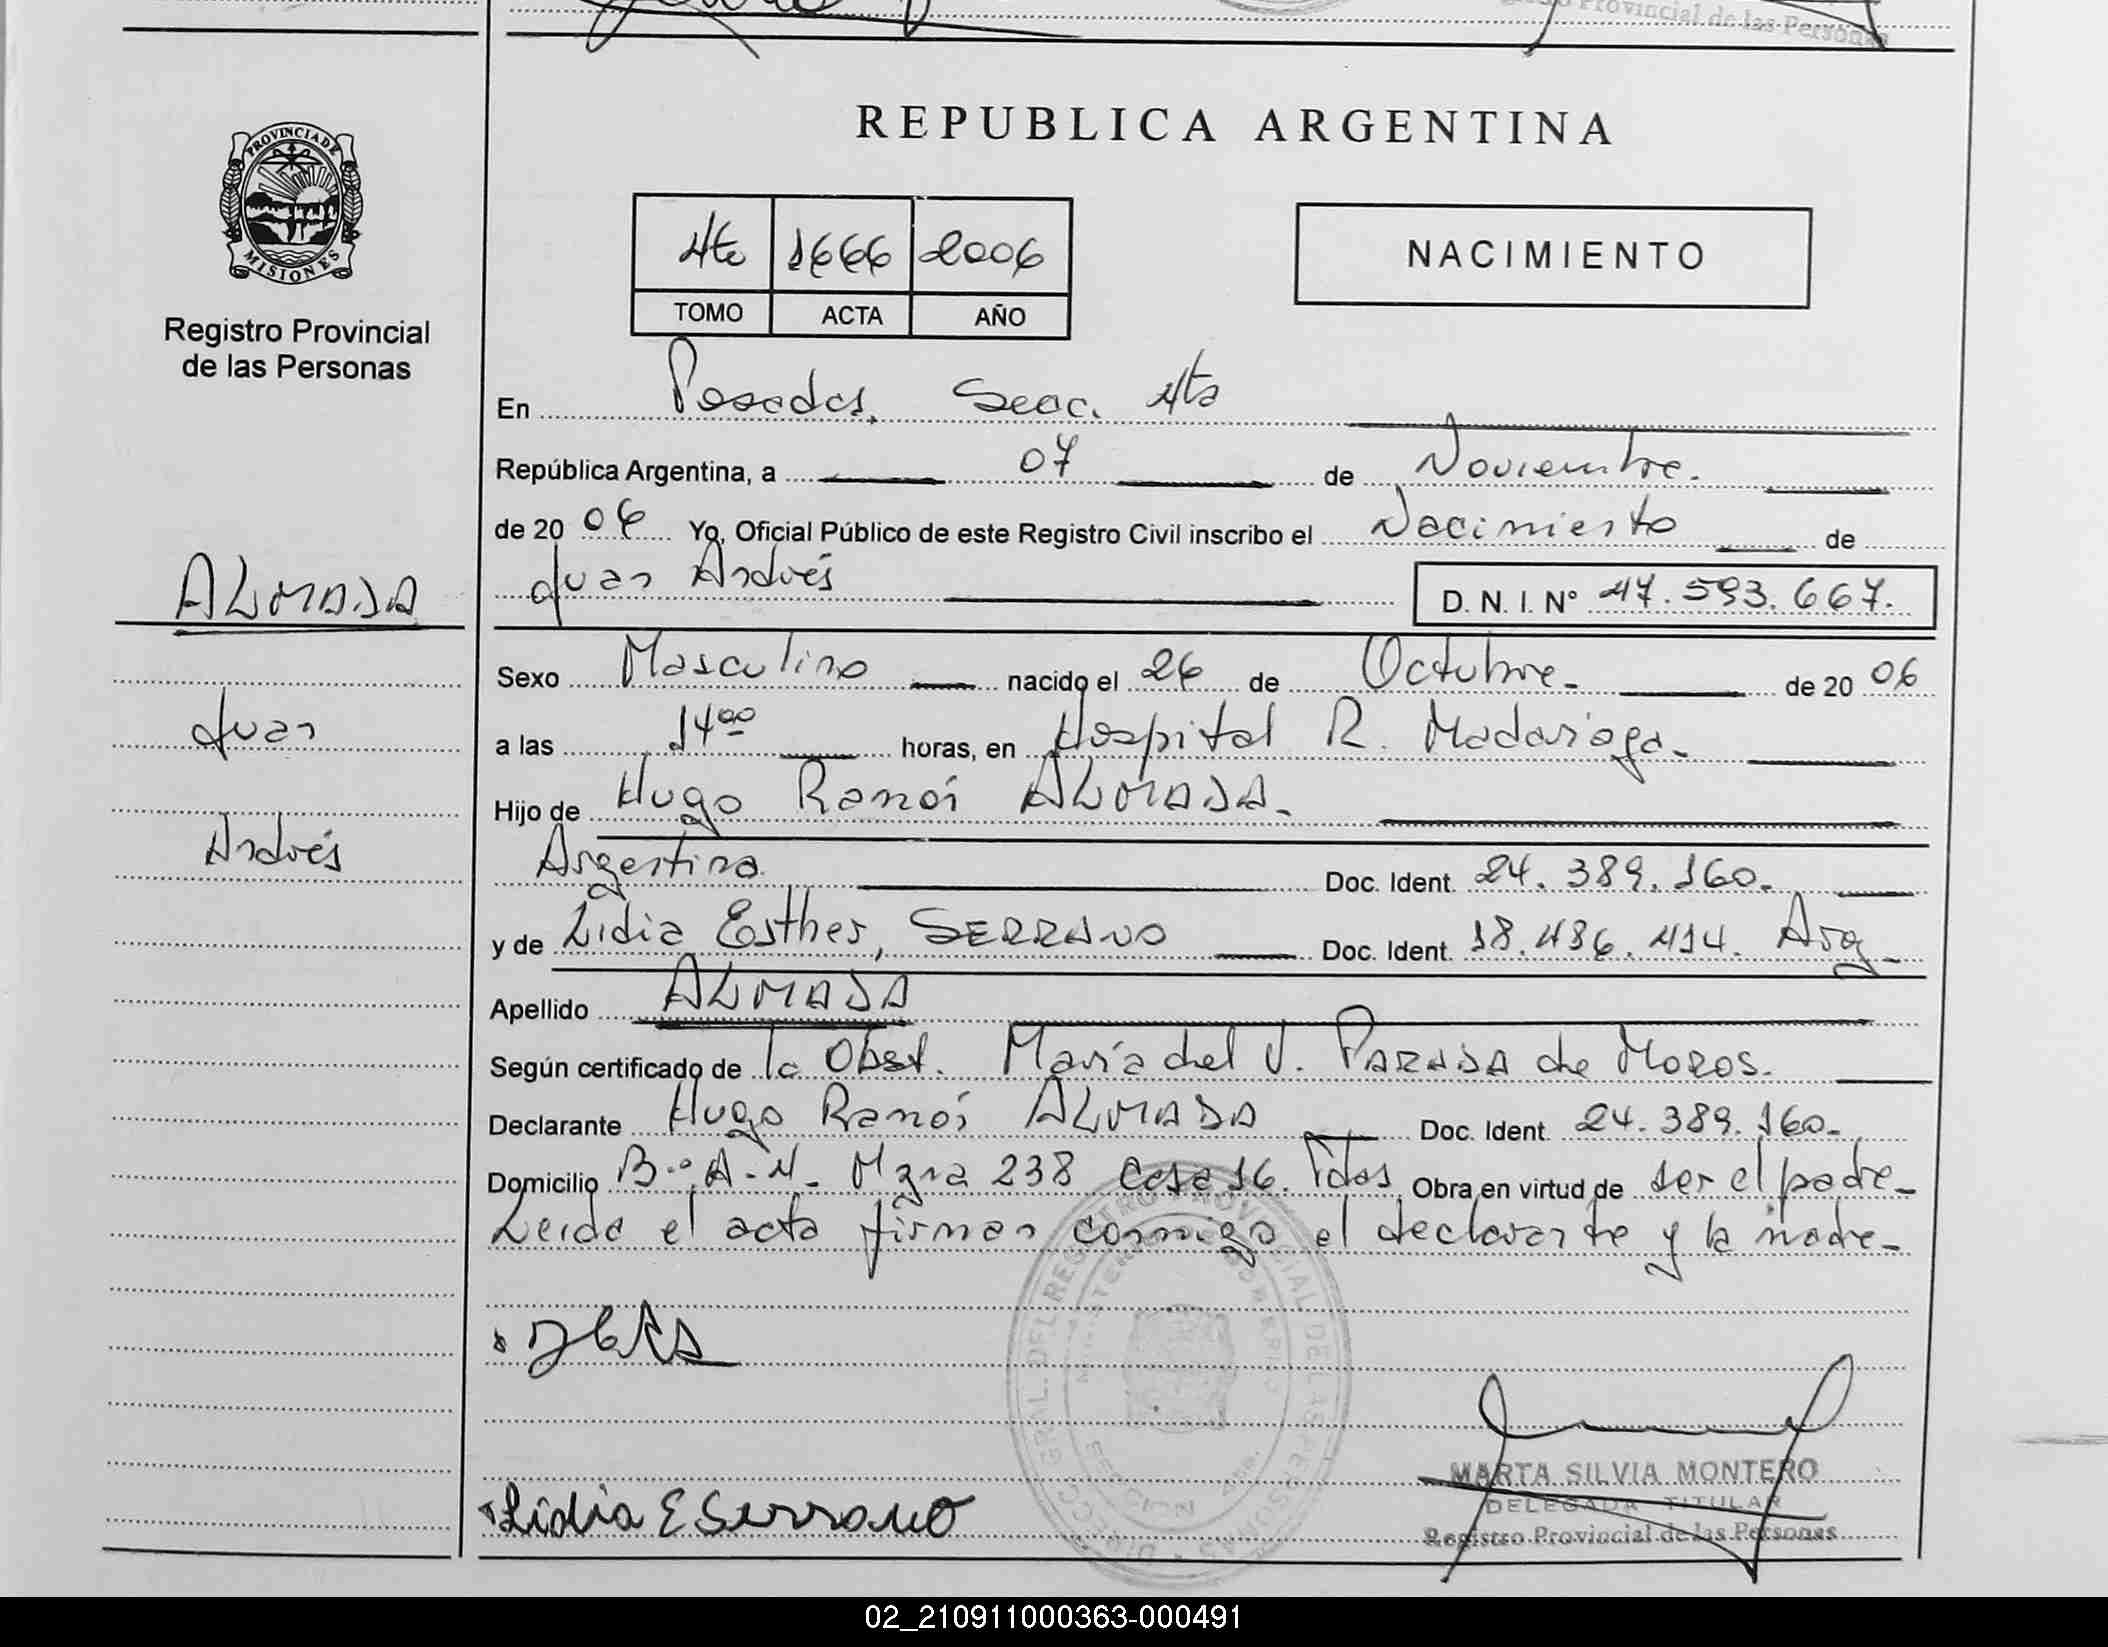 Provincial de las Personas
PROVINCIA DE
MISIONES
Registro Provincial
de las Personas
REPUBLICA ARGENTINA
4to 1666 2006
TOMO ACTA AÑO
NACIMIENTO
En Posadas, Secc. 4ta
República Argentina, a 07 de Noviembre.
de 20 06 Yo, Oficial Público de este Registro Civil inscribo el Nacimiento de
ALMADA
Juan Andrés D. N. I. N° 47.593.667.
Sexo Masculino nacido el 26 de Octubre. de 20 06
Juan
a las 14 00 horas, en Hospital R. Madariaga.
Hijo de Hugo Ramón ALMADA.
Andrés
Argentino. Doc. Ident. 24.389.160.
y de Lidia Esther, SERRANO Doc. Ident. 18.436.414. Arg.
Apellido ALMADA
Según certificado de la Obst. María del V. PARADA de MOROS.
Declarante Hugo Ramón ALMADA Doc. Ident. 24.389.160.
Domicilio B.° A-4. Mzna 238 Casa 16. Pdas. Obra en virtud de ser el padre.
Leída el acta firman conmigo el declarante y la madre.
Lidia E Serrano
MARTA SILVIA MONTERO
DELEGADA TITULAR
Registro Provincial de las Personas
02_210911000363-000491